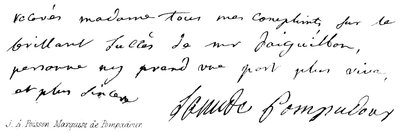 recevés madame tous mes compliments sur le
brillant succés de mr daiguillon,
personne ny prend une part plus vive,
et plus sincere
la m de Pompadour
J. A. Poisson Marquise de Pompadour.